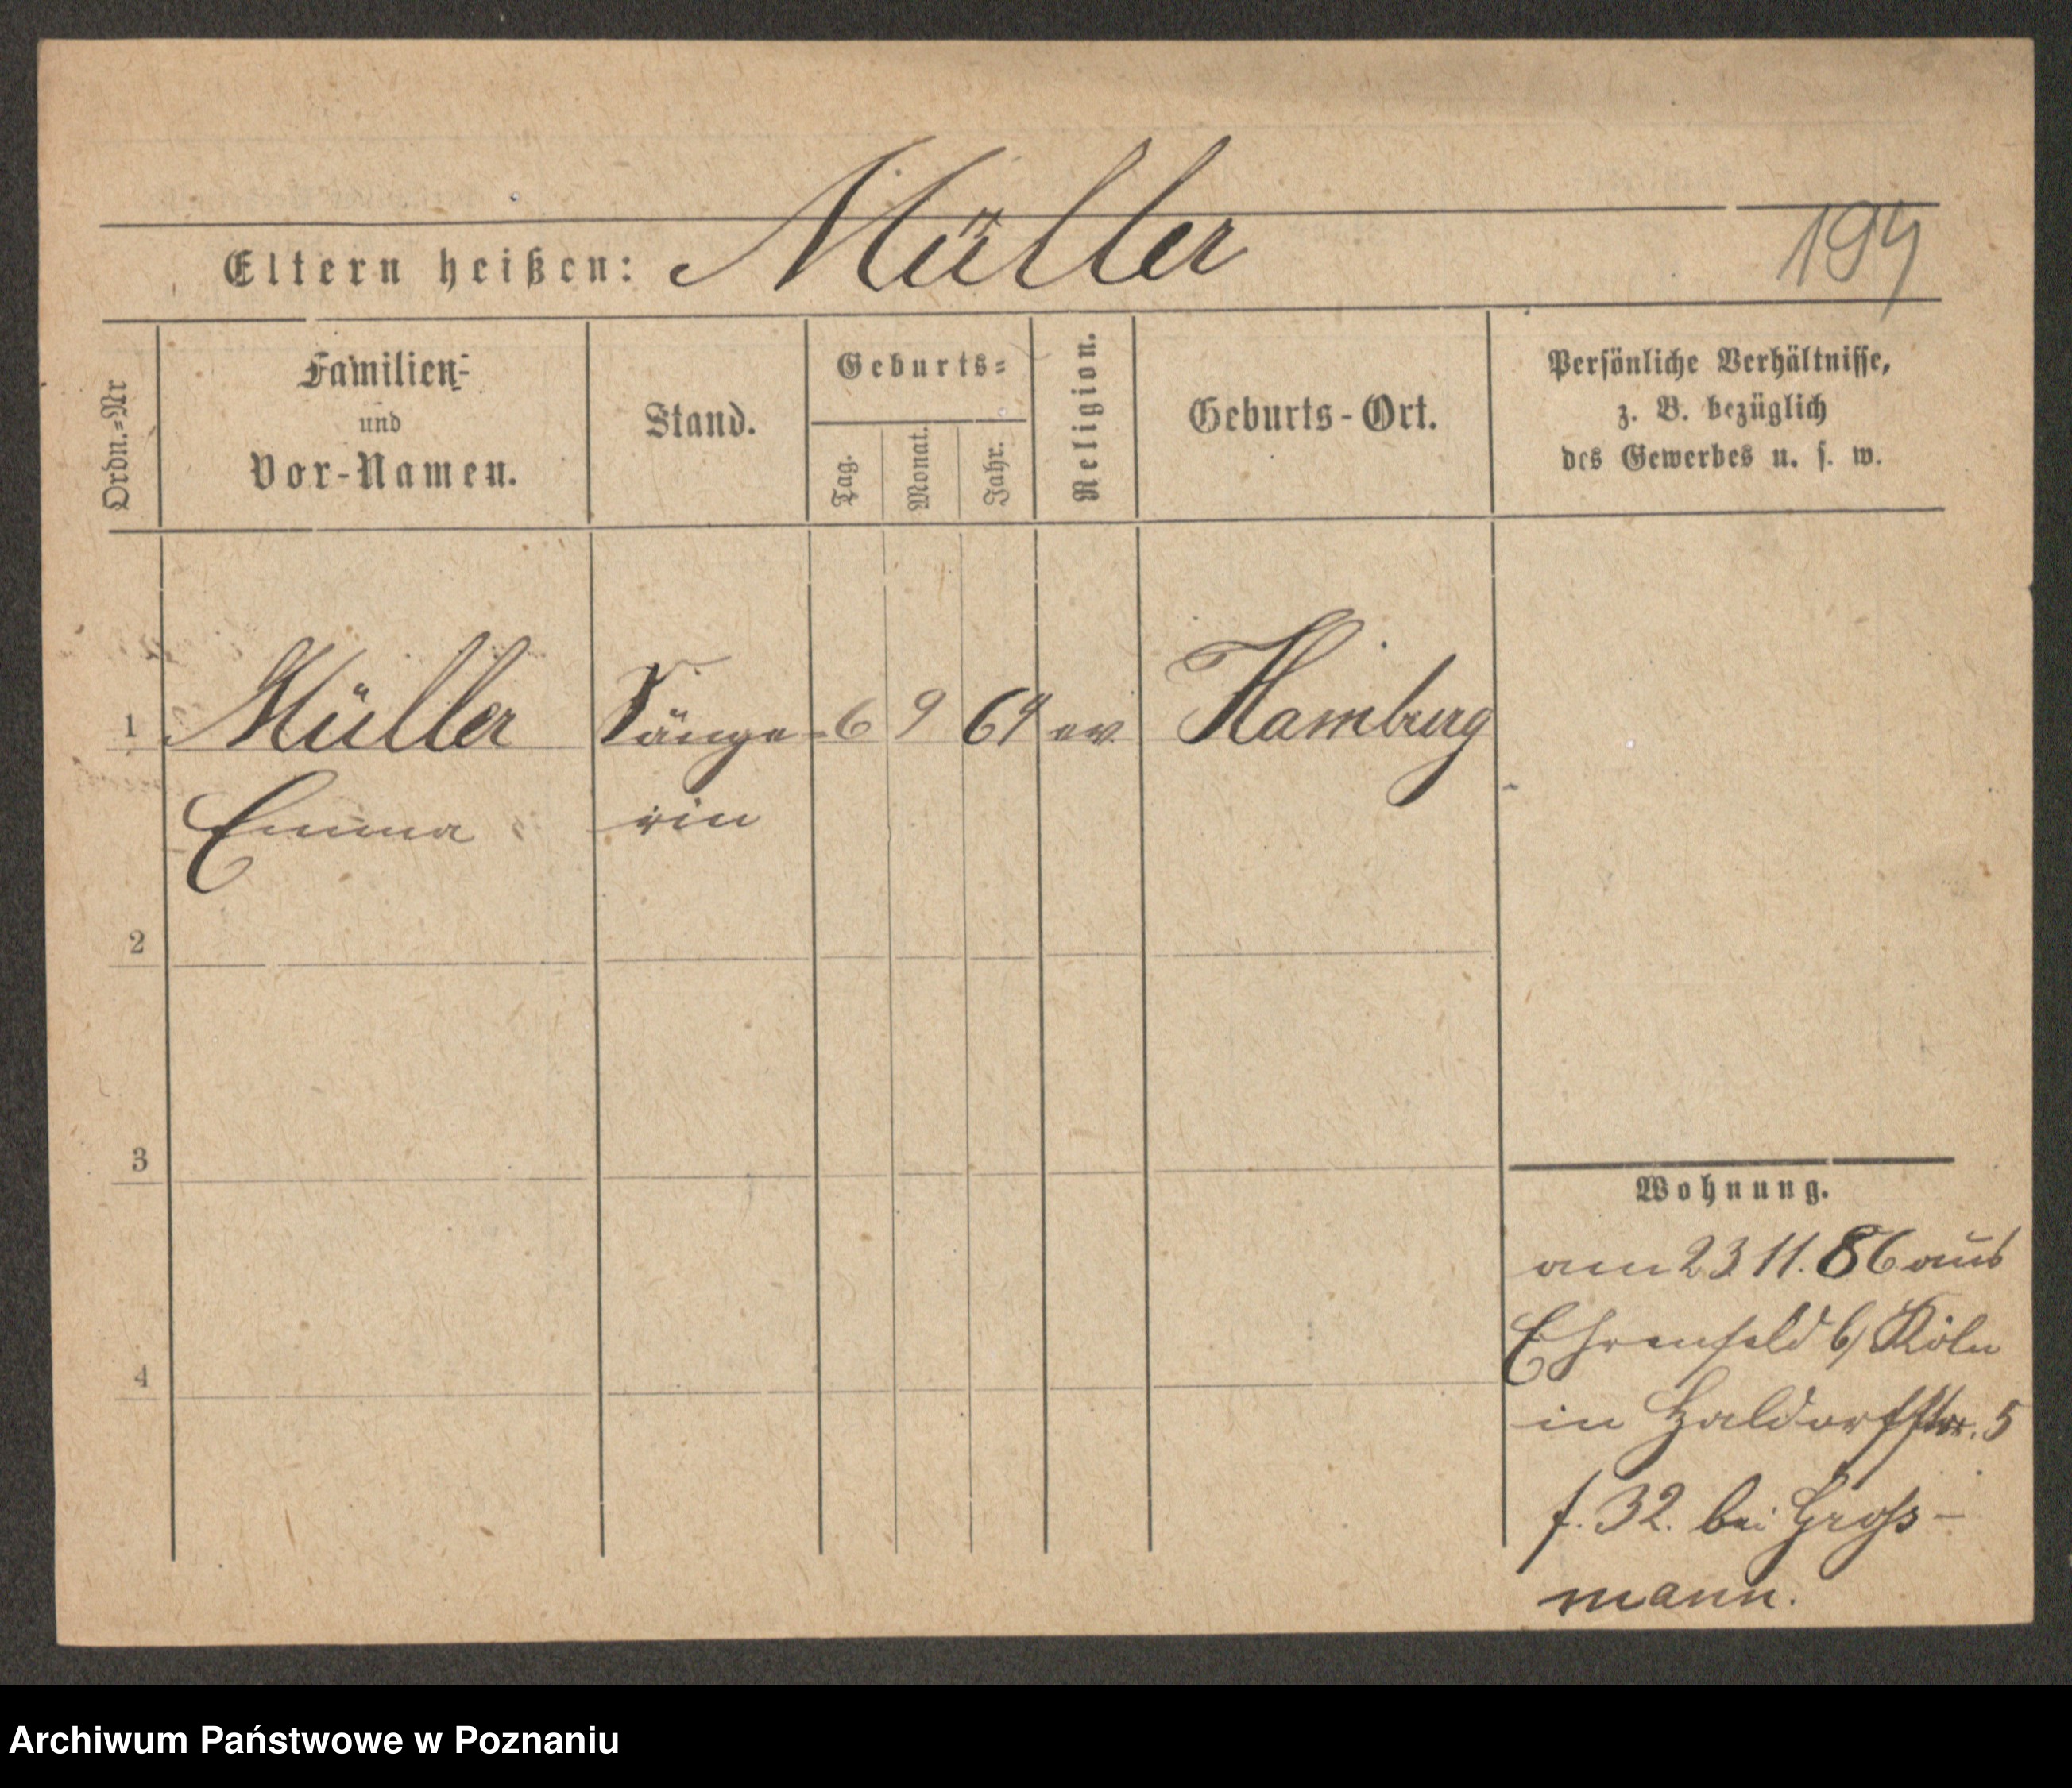 Eltern heißen: Müller
194
Ordn.=Nr
Familien=
und
Vor-Namen.
Stand.
Geburts=
Tag.
Monat.
Jahr.
Religion.
Geburts-Ort.
Persönliche Verhältnisse,
z. B. bezüglich
des Gewerbes u. s. w.
1 Müller Sänge= 6 9 64 ev. Hamburg
Emma rin
2
3
4
Wohnung.
am 23 11. 86 aus
Ehrenfeld b/ Köln
in Haldorfstr. 5
f. 32. bei Groß-
mann.
Archiwum Państwowe w Poznaniu